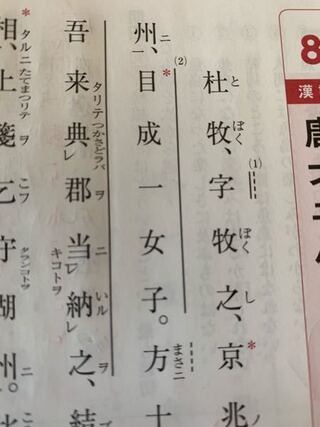 8
漢
杜牧、字牧之、京兆ノ
とぼく ぼくし
(1)
州ニ、目成一女子。方十
(2)
まさニ
吾来典郡当納之、結
タリテつかさどラバレヲニいルレヲ
キコトヲ
相、上箋乞守湖州。
タルニたてまつリテヲこフタランコトヲニ